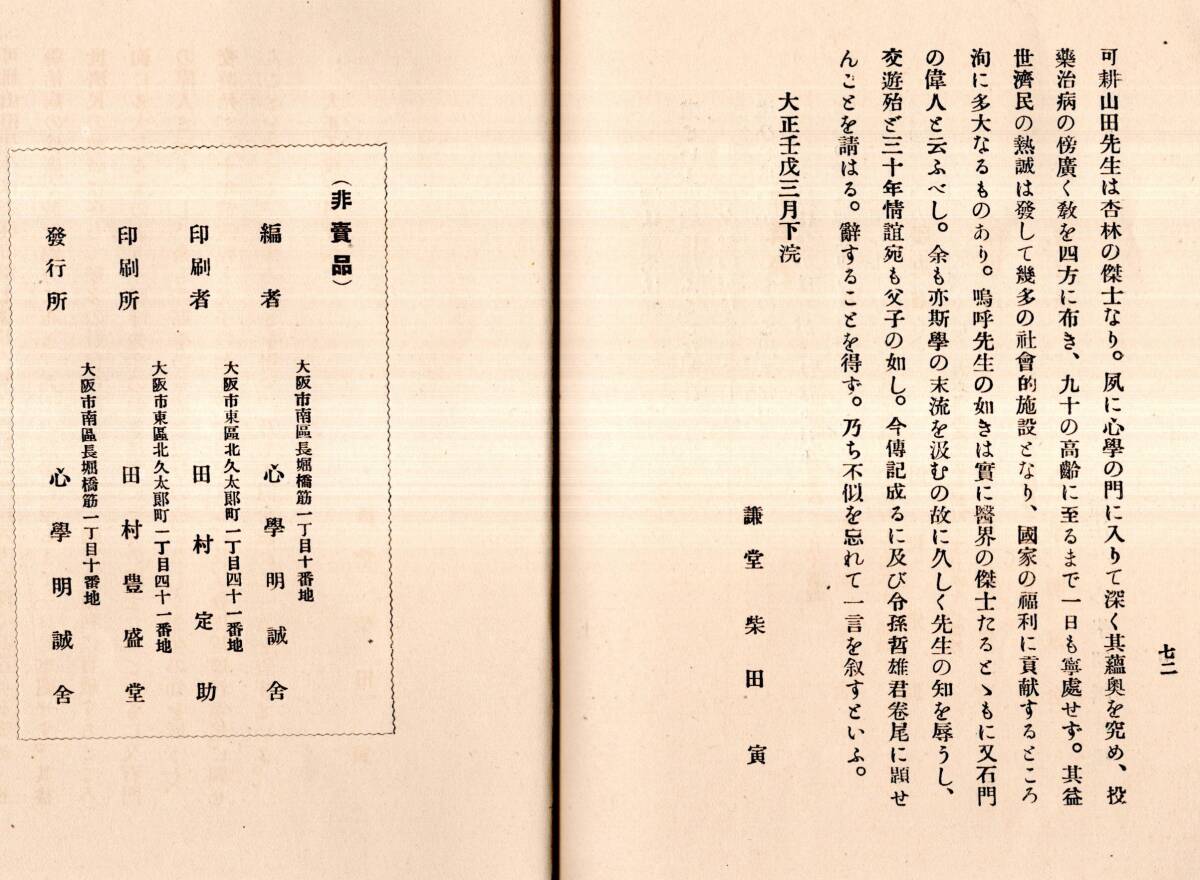 七二
可耕山田先生は杏林の傑士なり。夙に心學の門に入りて深く其蘊奥を究め、投
藥治病の傍廣く敎を四方に布き、九十の高齡に至るまで一日も寧處せず。其益
世濟民の熱誠は發して幾多の社會的施設となり、國家の福利に貢献するところ
洵に多大なるものあり。嗚呼先生の如きは實に醫界の傑士たるとゝもに又石門
の偉人と云ふべし。余も亦斯學の末流を汲むの故に久しく先生の知を辱うし、
交遊殆ど三十年情誼宛も父子の如し。今傳記成るに及び令孫哲雄君卷尾に題せ
んことを請はる。辭することを得ず。乃ち不似を忘れて一言を叙すといふ。
大正壬戊三月下浣
謙堂 柴田 寅
（非賣品）
大阪市南區長堀橋筋一丁目十番地
編者 心學明誠舍
大阪市東區北久太郞町二丁目四十一番地
印刷者 田村定助
大阪市東區北久太郞町二丁目四十一番地
印刷所 田村豊盛堂
大阪市南區長堀橋筋一丁目十番地
發行所 心學明誠舍